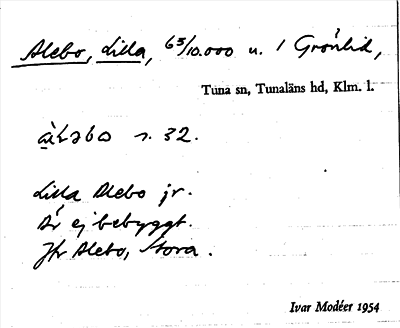 Alebo, Lilla, 65/10.000 u. 1 Grönlid,
Tuna sn, Tunaläns hd, Klm. l.
s. 32.
Lilla Alebo jr.
Är ej bebyggt.
Jfr Alebo, Stora.
Ivar Modéer 1954